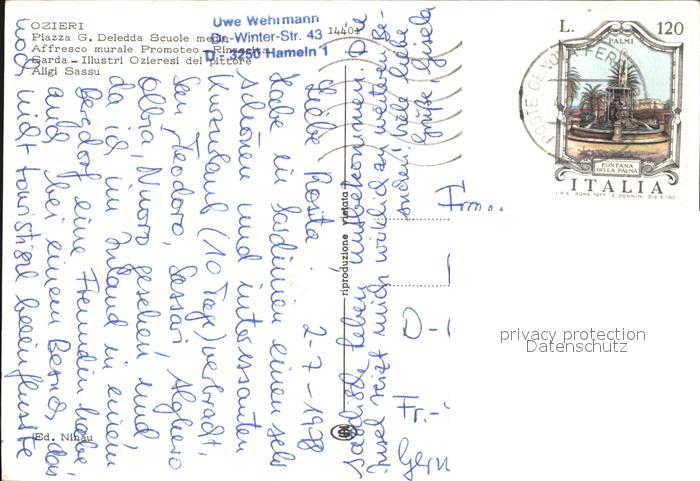 OZIERI
Piazza G. Deledda Scuole medie
Affresco murale Promoteo - Rinascita
Garda - Illustri Ozieresi del pittore
Aligi Sassu
Uwe Wehrmann
Dr.-Winter-Str. 43
D - 3250 Hameln 1
14401
L. 120
PALMI
FONTANA
DELLA PALMA
ITALIA
I.P.S. ROMA 1977 E. DONNINI DIS. E INC.
riproduzione vietata
Ed. Ninau
2-7-1978
Liebe Rosita,
habe in Sardinien einen sehr
schönen und interessanten
Kurzurlaub (10 Tage) verbracht.
San Teodoro, Sassari, Alghero
Olbia, Nuoro gesehen und
da ich im Inland in einem
Bergdorf eine Freundin habe
auch bei einem Besuch das
noch nicht touristisch beeinflußte
sardische Leben mitbekommen. Die
Insel reizt mich wirklich zu weiteren Be-
suchen! Viele liebe
Grüße Gisela
Fr.
D-
Gern
privacy protection
Datenschutz